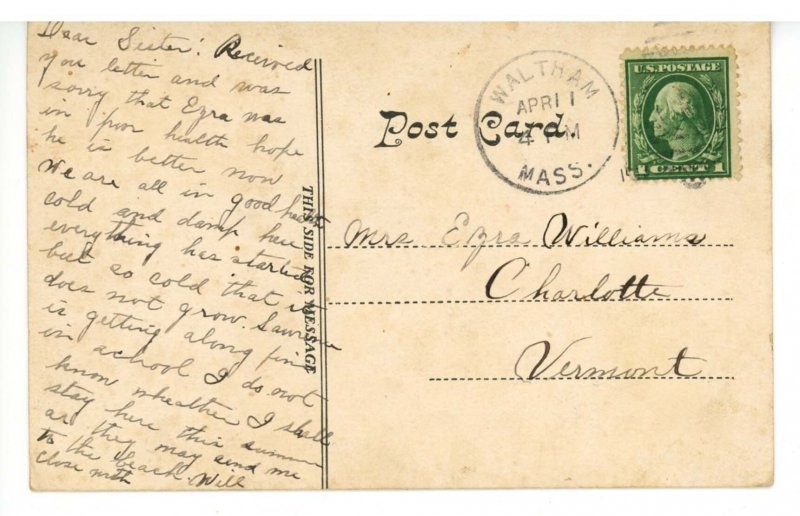 Dear Sister: Received
you letter and was
sorry that Ezra was
in poor health hope
he is better now
We are all in good health
cold and damp here
everything has started
but so cold that it
does not grow.
is getting along fine
in school I do not
know wheather I shall
stay here this summer
as they may send me
to the beach. Will
close with
THIS SIDE FOR MESSAGE
Post Card.
WALTHAM
APR 11
4 PM
MASS.
U.S. POSTAGE
1 CENT 1
Mrs Ezra Williams
Charlotte
Vermont